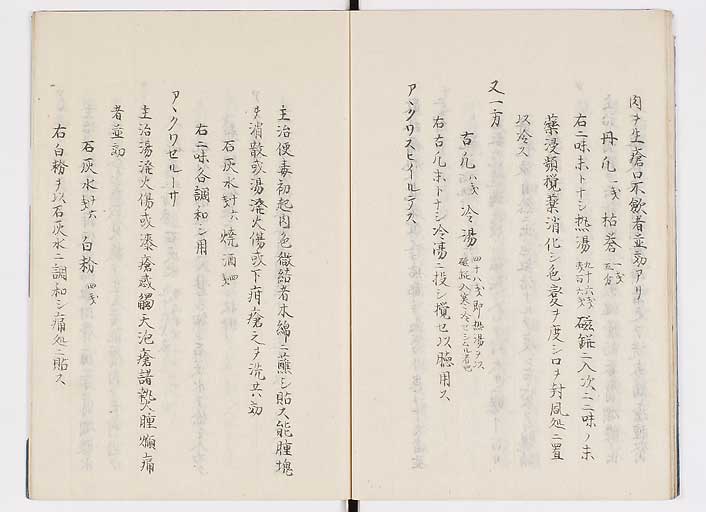 肉ヲ生瘡口不歛者並効アリ
丹凡 一戔 枯礬 一戔五分
右二味末トナシ熱湯 九十六戔 磁鍾ニ入次ニ二味ノ末
藥浸頻攪藥消化シ色変ヲ度シロヲ封風処ニ置
以冷ス
又一方
古凡 八戔 冷湯 四十八戔即熱湯ヲ以磁瓶入寒冷セシムル者也
右古凡末トナシ冷湯ニ投シ攪セ以臨用ス
アヽクワスヒイルテス
主治便毒初起肉色微結者木綿ニ蘸シ貼ス能腫塊
ヲ消散或湯潑火傷或下疳瘡之ヲ洗共効
石灰水 六 焼酒 四戔
右二味各調和シ用
アヽクワゼルーサ
主治湯潑火傷或漆瘡或觸天泡瘡諸熱腫癩痛
者並効
石灰水 六 白粉 四戔
右白粉ヲ以石灰水ニ調和シ痛処ニ貼ス